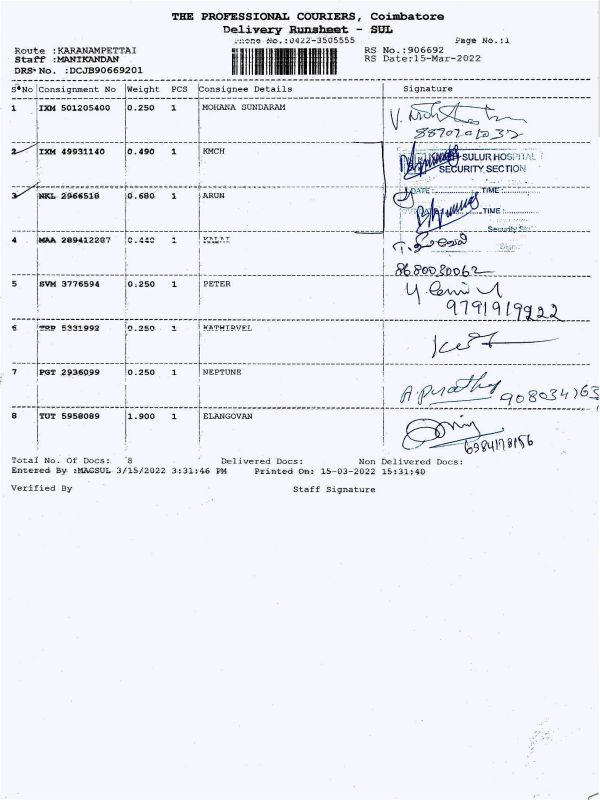 THE PROFESSIONAL COURIERS, Coimbatore
Delivery Runsheet - SUL
Phone No.:0422-3505555 Page No.:1
Route :KARANAMPETTAI RS No.:906692
Staff :MANIKANDAN RS Date:15-Mar-2022
DRS No. :DCJB90669201
S No Consignment No Weight PCS Consignee Details Signature
1 IXM 501205400 0.250 1 MOHANA SUNDARAM
2 IXM 49931140 0.490 1 KMCH
SULUR HOSPITAL
SECURITY SECTION
3 NKL 2966518 0.680 1 ARUN
DATE: TIME:
TIME:
Security
4 MAA 289412287 0.440 1
8680030062
5 SVM 3776594 0.250 1 PETER
9791919922
6 TRP 5331992 0.250 1 KATHIRVEL
7 PGT 2936099 0.250 1 NEPTUNE
908034763
8 TUT 5958089 1.900 1 ELANGOVAN
Total No. Of Docs: 8 Delivered Docs: Non Delivered Docs:
Entered By :MAGSUL 3/15/2022 3:31:46 PM Printed On: 15-03-2022 15:31:40
Verified By Staff Signature